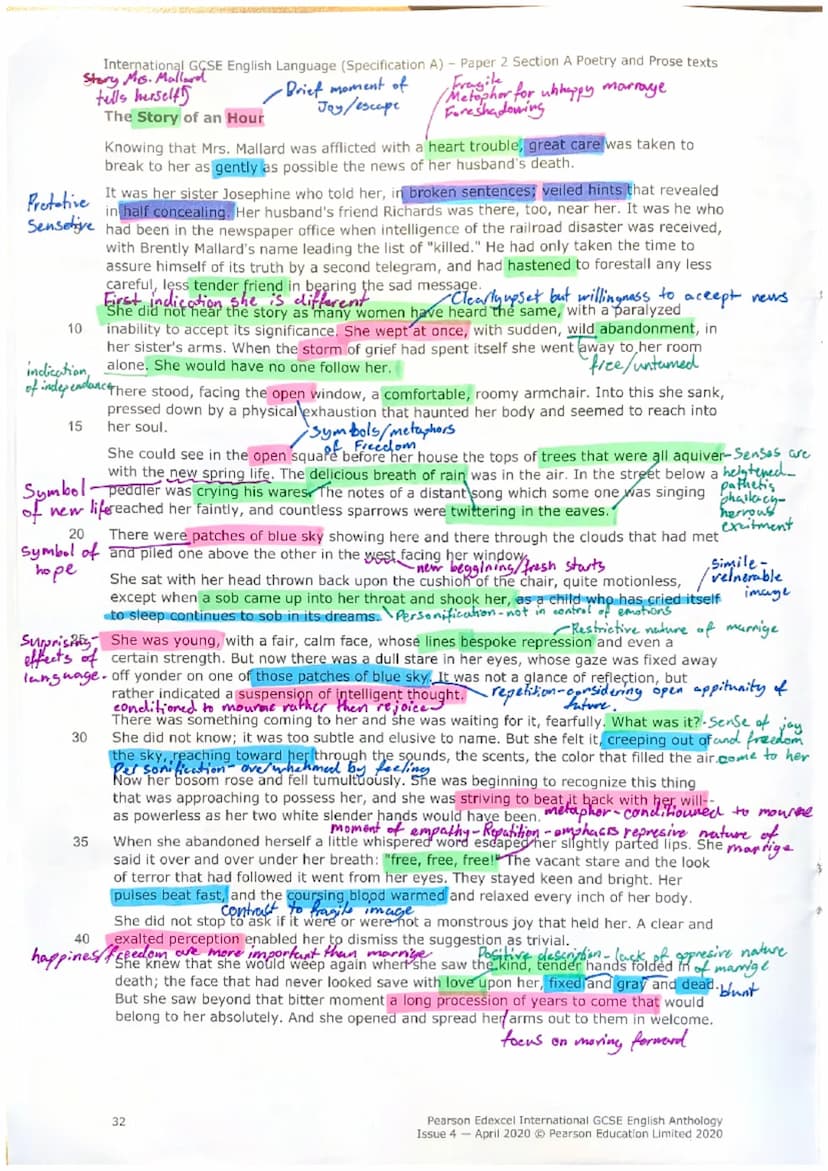 International GCSE English Language (Specification A) – Paper 2 Section A Poetry and Prose texts
Story Ms. Mallard
tells herself
Brief moment of
Joy/escape
Fragile
Metaphor for unhappy marriage
Foreshadowing
The Story of an Hour
Knowing that Mrs. Mallard was afflicted with a heart trouble, great care was taken to
break to her as gently as possible the news of her husband's death.
It was her sister Josephine who told her, in broken sentences; veiled hints that revealed
Protative
Sensetive
in half concealing. Her husband's friend Richards was there, too, near her. It was he who
had been in the newspaper office when intelligence of the railroad disaster was received,
with Brently Mallard's name leading the list of "killed." He had only taken the time to
assure himself of its truth by a second telegram, and had hastened to forestall any less
careful, less tender friend in bearing the sad message.
First indication she is different
Clearly upset but willingness to accept news
She did not hear the story as many women have heard the same, with a paralyzed
10 inability to accept its significance. She wept at once, with sudden, wild abandonment, in
her sister's arms. When the storm of grief had spent itself she went away to her room
alone. She would have no one follow her.
free/untamed
indication
of independance
There stood, facing the open window, a comfortable, roomy armchair. Into this she sank,
pressed down by a physical exhaustion that haunted her body and seemed to reach into
15 her soul.
Symbols/metaphors
of Freedom
She could see in the open square before her house the tops of trees that were all aquiver
with the new spring life. The delicious breath of rain was in the air. In the street below a
peddler was crying his wares. The notes of a distant song which some one was singing
reached her faintly, and countless sparrows were twittering in the eaves.
Senses are
heightened-
pathetic
phallacy-
excitment
Symbol
of new life
20 There were patches of blue sky showing here and there through the clouds that had met
and piled one above the other in the west facing her window.
Symbol of
hope
new beggining/fresh starts
She sat with her head thrown back upon the cushion of the chair, quite motionless,
except when a sob came up into her throat and shook her, as a child who has cried itself
to sleep continues to sob in its dreams.
Simile-
velnerable
image
Personification-not in control of emotions
Restrictive nature of marrige
25 She was young, with a fair, calm face, whose lines bespoke repression and even a
certain strength. But now there was a dull stare in her eyes, whose gaze was fixed away
off yonder on one of those patches of blue sky. It was not a glance of reflection, but
rather indicated a suspension of intelligent thought.
Suprising
effects of
language-
repetition-considering open appitunity of
future.
conditioned to mourne rather then rejoice
There was something coming to her and she was waiting for it, fearfully. What was it?
30 She did not know; it was too subtle and elusive to name. But she felt it, creeping out of
the sky, reaching toward her through the sounds, the scents, the color that filled the air.
-Sense of joy
and freedom
come to her
Personification-overwhelmed by feeling
Now her bosom rose and fell tumultuously. She was beginning to recognize this thing
that was approaching to possess her, and she was striving to beat it back with her will--
as powerless as her two white slender hands would have been.
metaphor-conditioned to mourne
moment of empathy-Repatition-emphacis represive nature of
marrige
35 When she abandoned herself a little whispered word escaped her slightly parted lips. She
said it over and over under her breath: "free, free, free!" The vacant stare and the look
of terror that had followed it went from her eyes. They stayed keen and bright. Her
pulses beat fast, and the coursing blood warmed and relaxed every inch of her body.
contrast to fragile image
She did not stop to ask if it were or were not a monstrous joy that held her. A clear and
40 exalted perception enabled her to dismiss the suggestion as trivial.
happines/freedom are more important than marrige
Positive description-lack of oppresive nature
of marrige
She knew that she would weep again when she saw the kind, tender hands folded in
death; the face that had never looked save with love upon her, fixed and gray and dead.
blunt
But she saw beyond that bitter moment a long procession of years to come that would
belong to her absolutely. And she opened and spread her arms out to them in welcome.
focus on moving forward
32
Pearson Edexcel International GCSE English Anthology
Issue 4 — April 2020 © Pearson Education Limited 2020